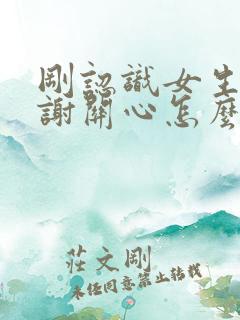 剛認識女生
謝關心怎麼
莊文剛
未經同意禁止转载